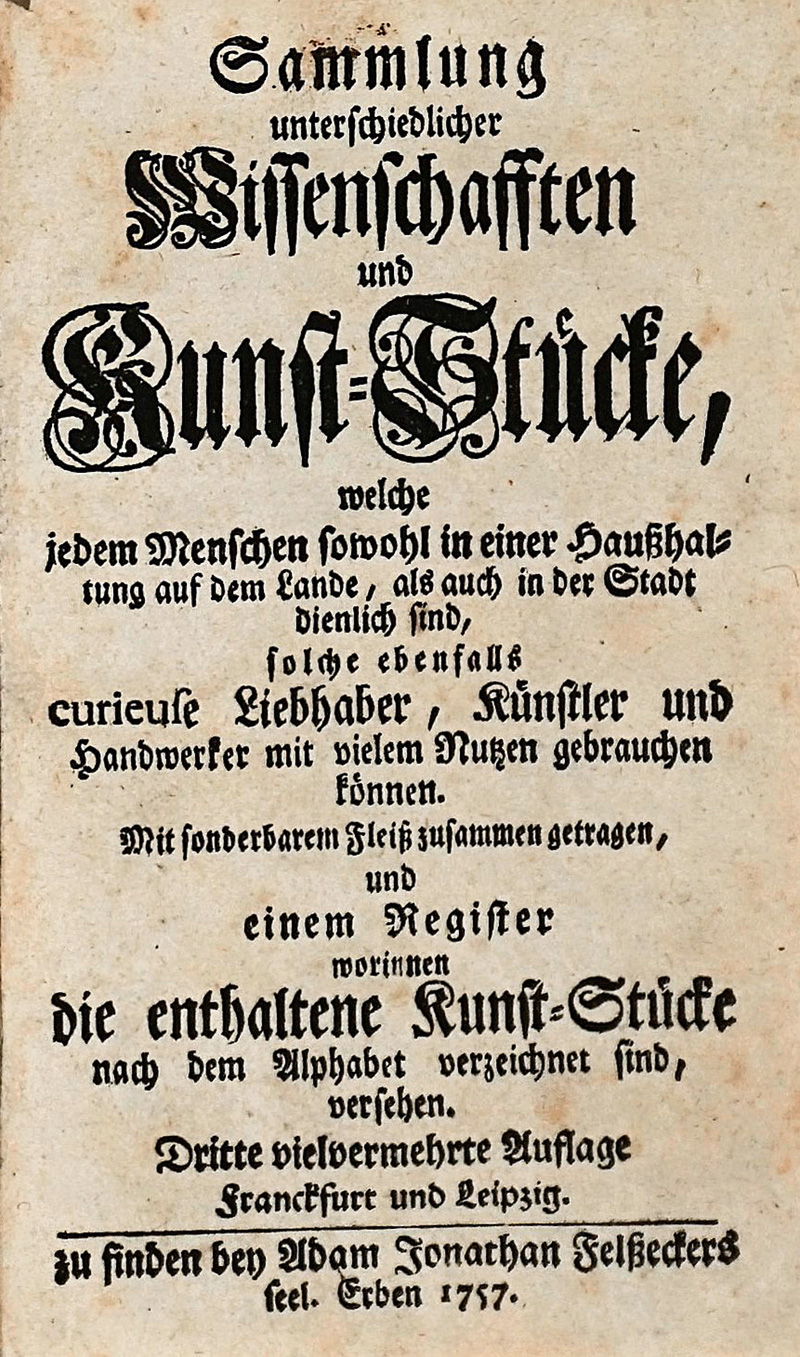 Sammlung
unterschiedlicher
Wissenschafften
und
Kunst-Stücke,
welche
jedem Menschen sowohl in einer Haußhal-
tung auf dem Lande, als auch in der Stadt
dienlich sind,
solche ebenfalls
curieuse Liebhaber, Künstler und
Handwerker mit vielem Nutzen gebrauchen
können.
Mit sonderbarem Fleiß zusammen getragen,
und
einem Register
worinnen
die enthaltene Kunst-Stücke
nach dem Alphabet verzeichnet sind,
versehen.
Dritte vielvermehrte Auflage
Franckfurt und Leipzig.
zu finden bey Adam Jonathan Felßeckers
seel. Erben 1757.